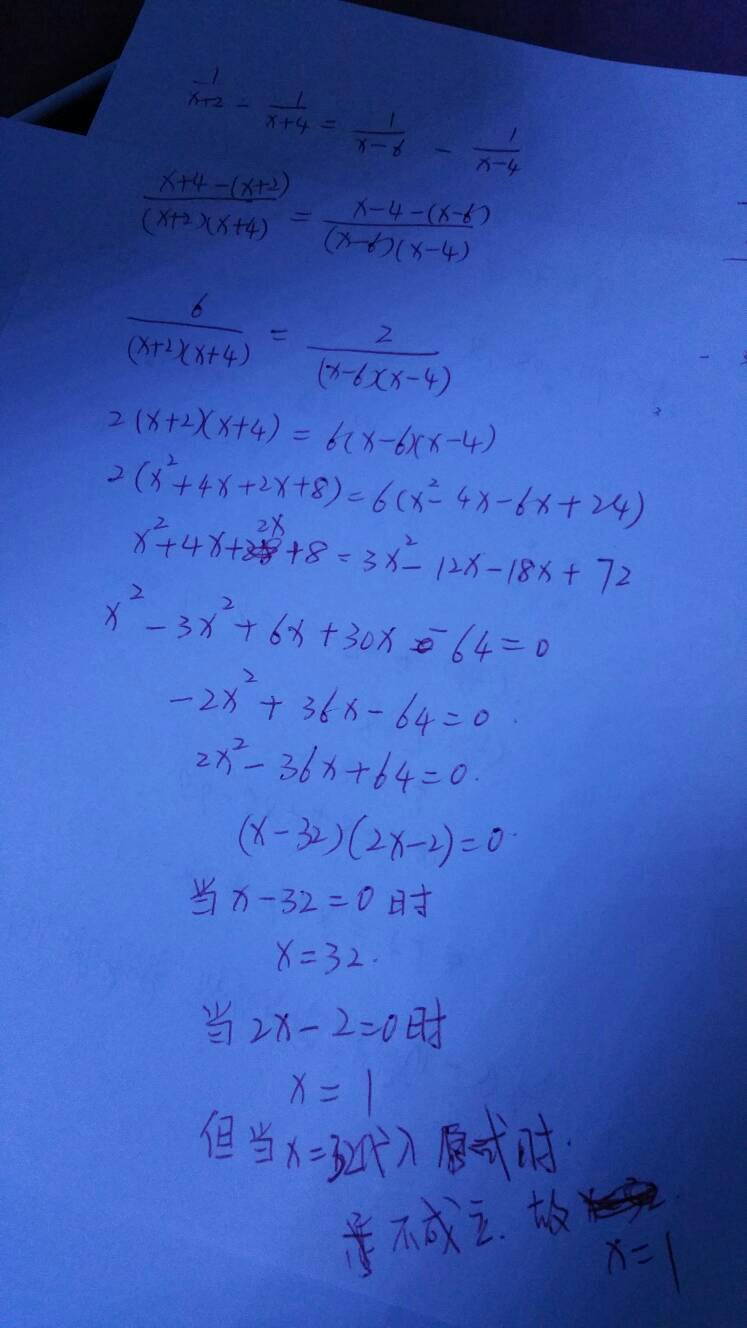 1/(x+2) - 1/(x+4) = 1/(x-6) - 1/(x-4)
(x+4-(x+2))/((x+2)(x+4)) = (x-4-(x-6))/((x-6)(x-4))
6/((x+2)(x+4)) = 2/((x-6)(x-4))
2(x+2)(x+4) = 6(x-6)(x-4)
2(x²+4x+2x+8) = 6(x²-4x-6x+24)
x²+4x+2x+8 = 3x²-12x-18x+72
x²-3x²+6x+30x-64=0
-2x²+36x-64=0.
2x²-36x+64=0.
(x-32)(2x-2)=0.
当x-32=0时
x=32.
当2x-2=0时
x=1
但当x=32代入原式时.
不成立.故
x=1